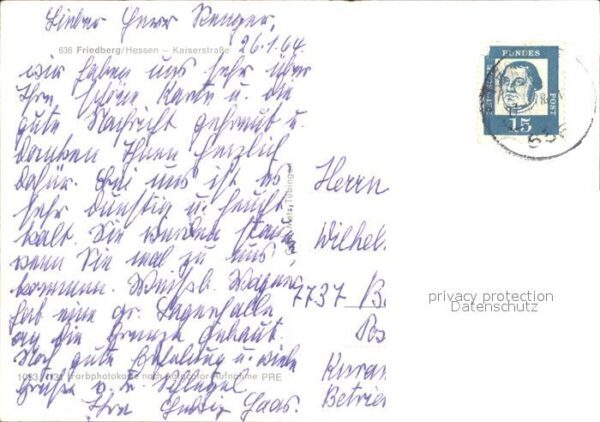 Lieber Herr Renger,
636 Friedberg/Hessen — Kaiserstraße
26.1.64
wir haben uns sehr über
Ihre schöne Karte u. die
gute Nachricht gefreut u.
danken Ihnen herzlich
dafür. Bei uns ist es
sehr dunstig u. feucht
kalt. Sie werden
wenn Sie mal zu uns
kommen. Wagner
hat eine gr. Lagerhalle
an die Grenze gebaut.
Noch gute Erholung u. viele
Grüße
Ihre Haas.
Farbphotokarte nach Agfacolor-Aufnahme PRE
Metz, Tübingen
DEUTSCHE
BUNDES
POST
15
636
Herrn
Wilhel
7737 / B
Pos
Kuran
Betrie
privacy protection
Datenschutz